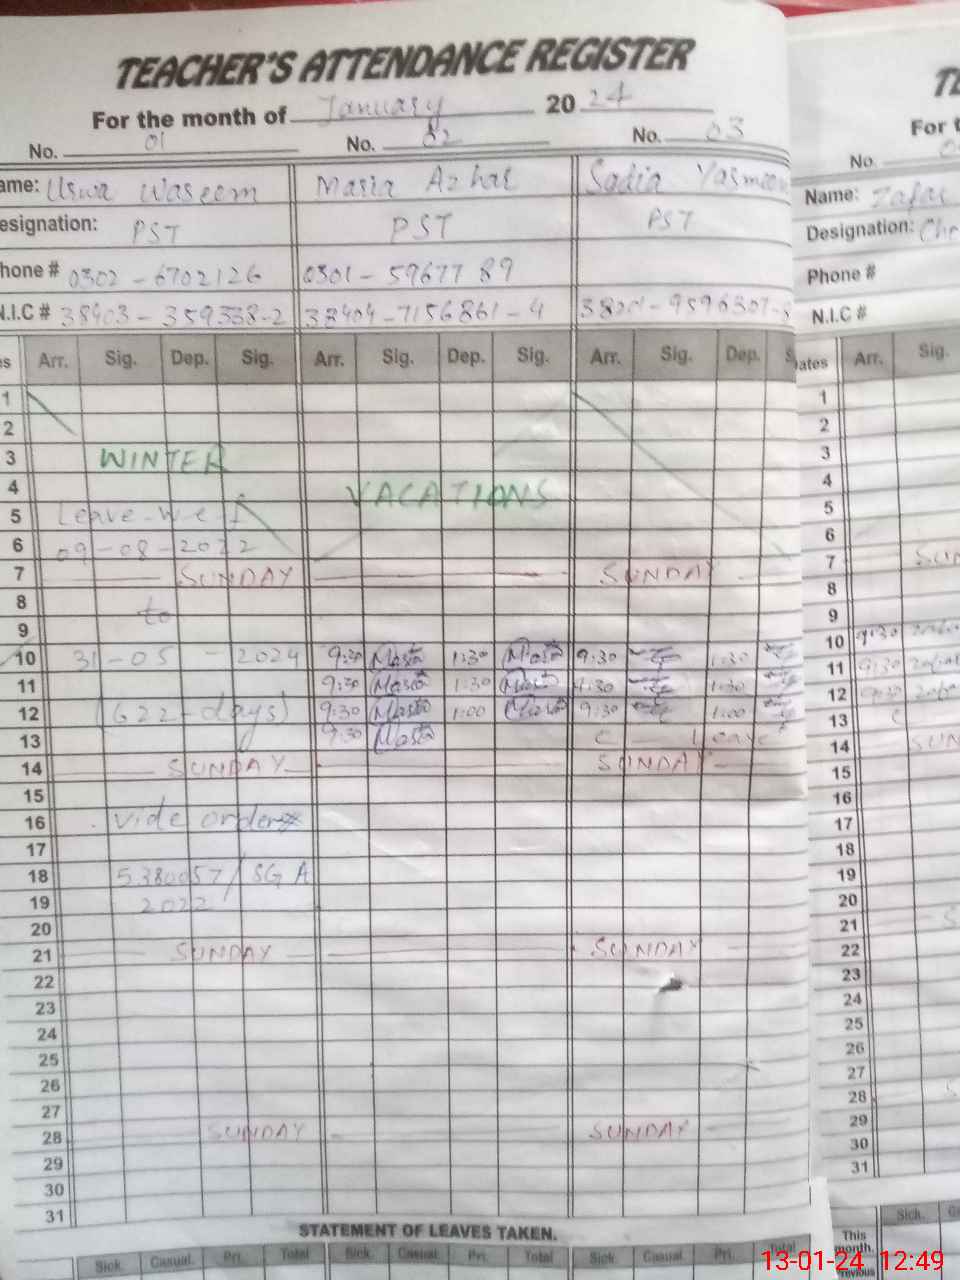 TEACHER'S ATTENDANCE REGISTER
For the month of January 20 24
No. 01 No. 02 No. 03
ame: Uswa Waseem Maria Azhar Sadia Yasmeen
esignation: PST PST PST
hone # 0302-6702126 0301-5967789
N.I.C # 38403-359338-2 38404-7156861-4 38201-9596307-8
es Arr. Sig. Dep. Sig. Arr. Sig. Dep. Sig. Arr. Sig. Dep. S
1
2
3 WINTER
4 VACATIONS
5 Leave w.e.f
6 09-08-2022
7 SUNDAY SUNDAY
8 to
9
10 31-05-2024 9:30 Maria 1:30 Maria 9:30 1:30
11 9:30 Maria 1:30 Maria 9:30 1:30
12 (622-days) 9:30 Maria 1:00 Maria 9:30 1:00
13 9:30 Maria C Leave
14 SUNDAY SUNDAY
15
16 vide order
17
18 5380057/SGA
19 2022
20
21 SUNDAY SUNDAY
22
23
24
25
26
27
28 SUNDAY SUNDAY
29
30
31
STATEMENT OF LEAVES TAKEN.
Sick. Casual. Pri. Total Sick. Casual. Pri. Total Sick. Casual. Pri. Total
TE
For t
No.
Name: Zafar
Designation: Che
Phone #
N.I.C #
ates Arr. Sig.
1
2
3
4
5
6
7 SUN
8
9
10 9:30 Zafar
11 9:30 Zafar
12 9:30 Zafar
13 C
14 SUN
15
16
17
18
19
20
21 S
22
23
24
25
26
27
28
29
30
31
Sick.
This
month.
Previous
13-01-24 12:49